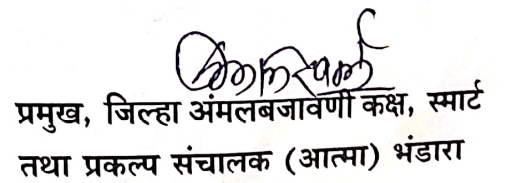 प्रमुख, जिल्हा अंमलबजावणी कक्ष, स्मार्ट
तथा प्रकल्प संचालक (आत्मा) भंडारा